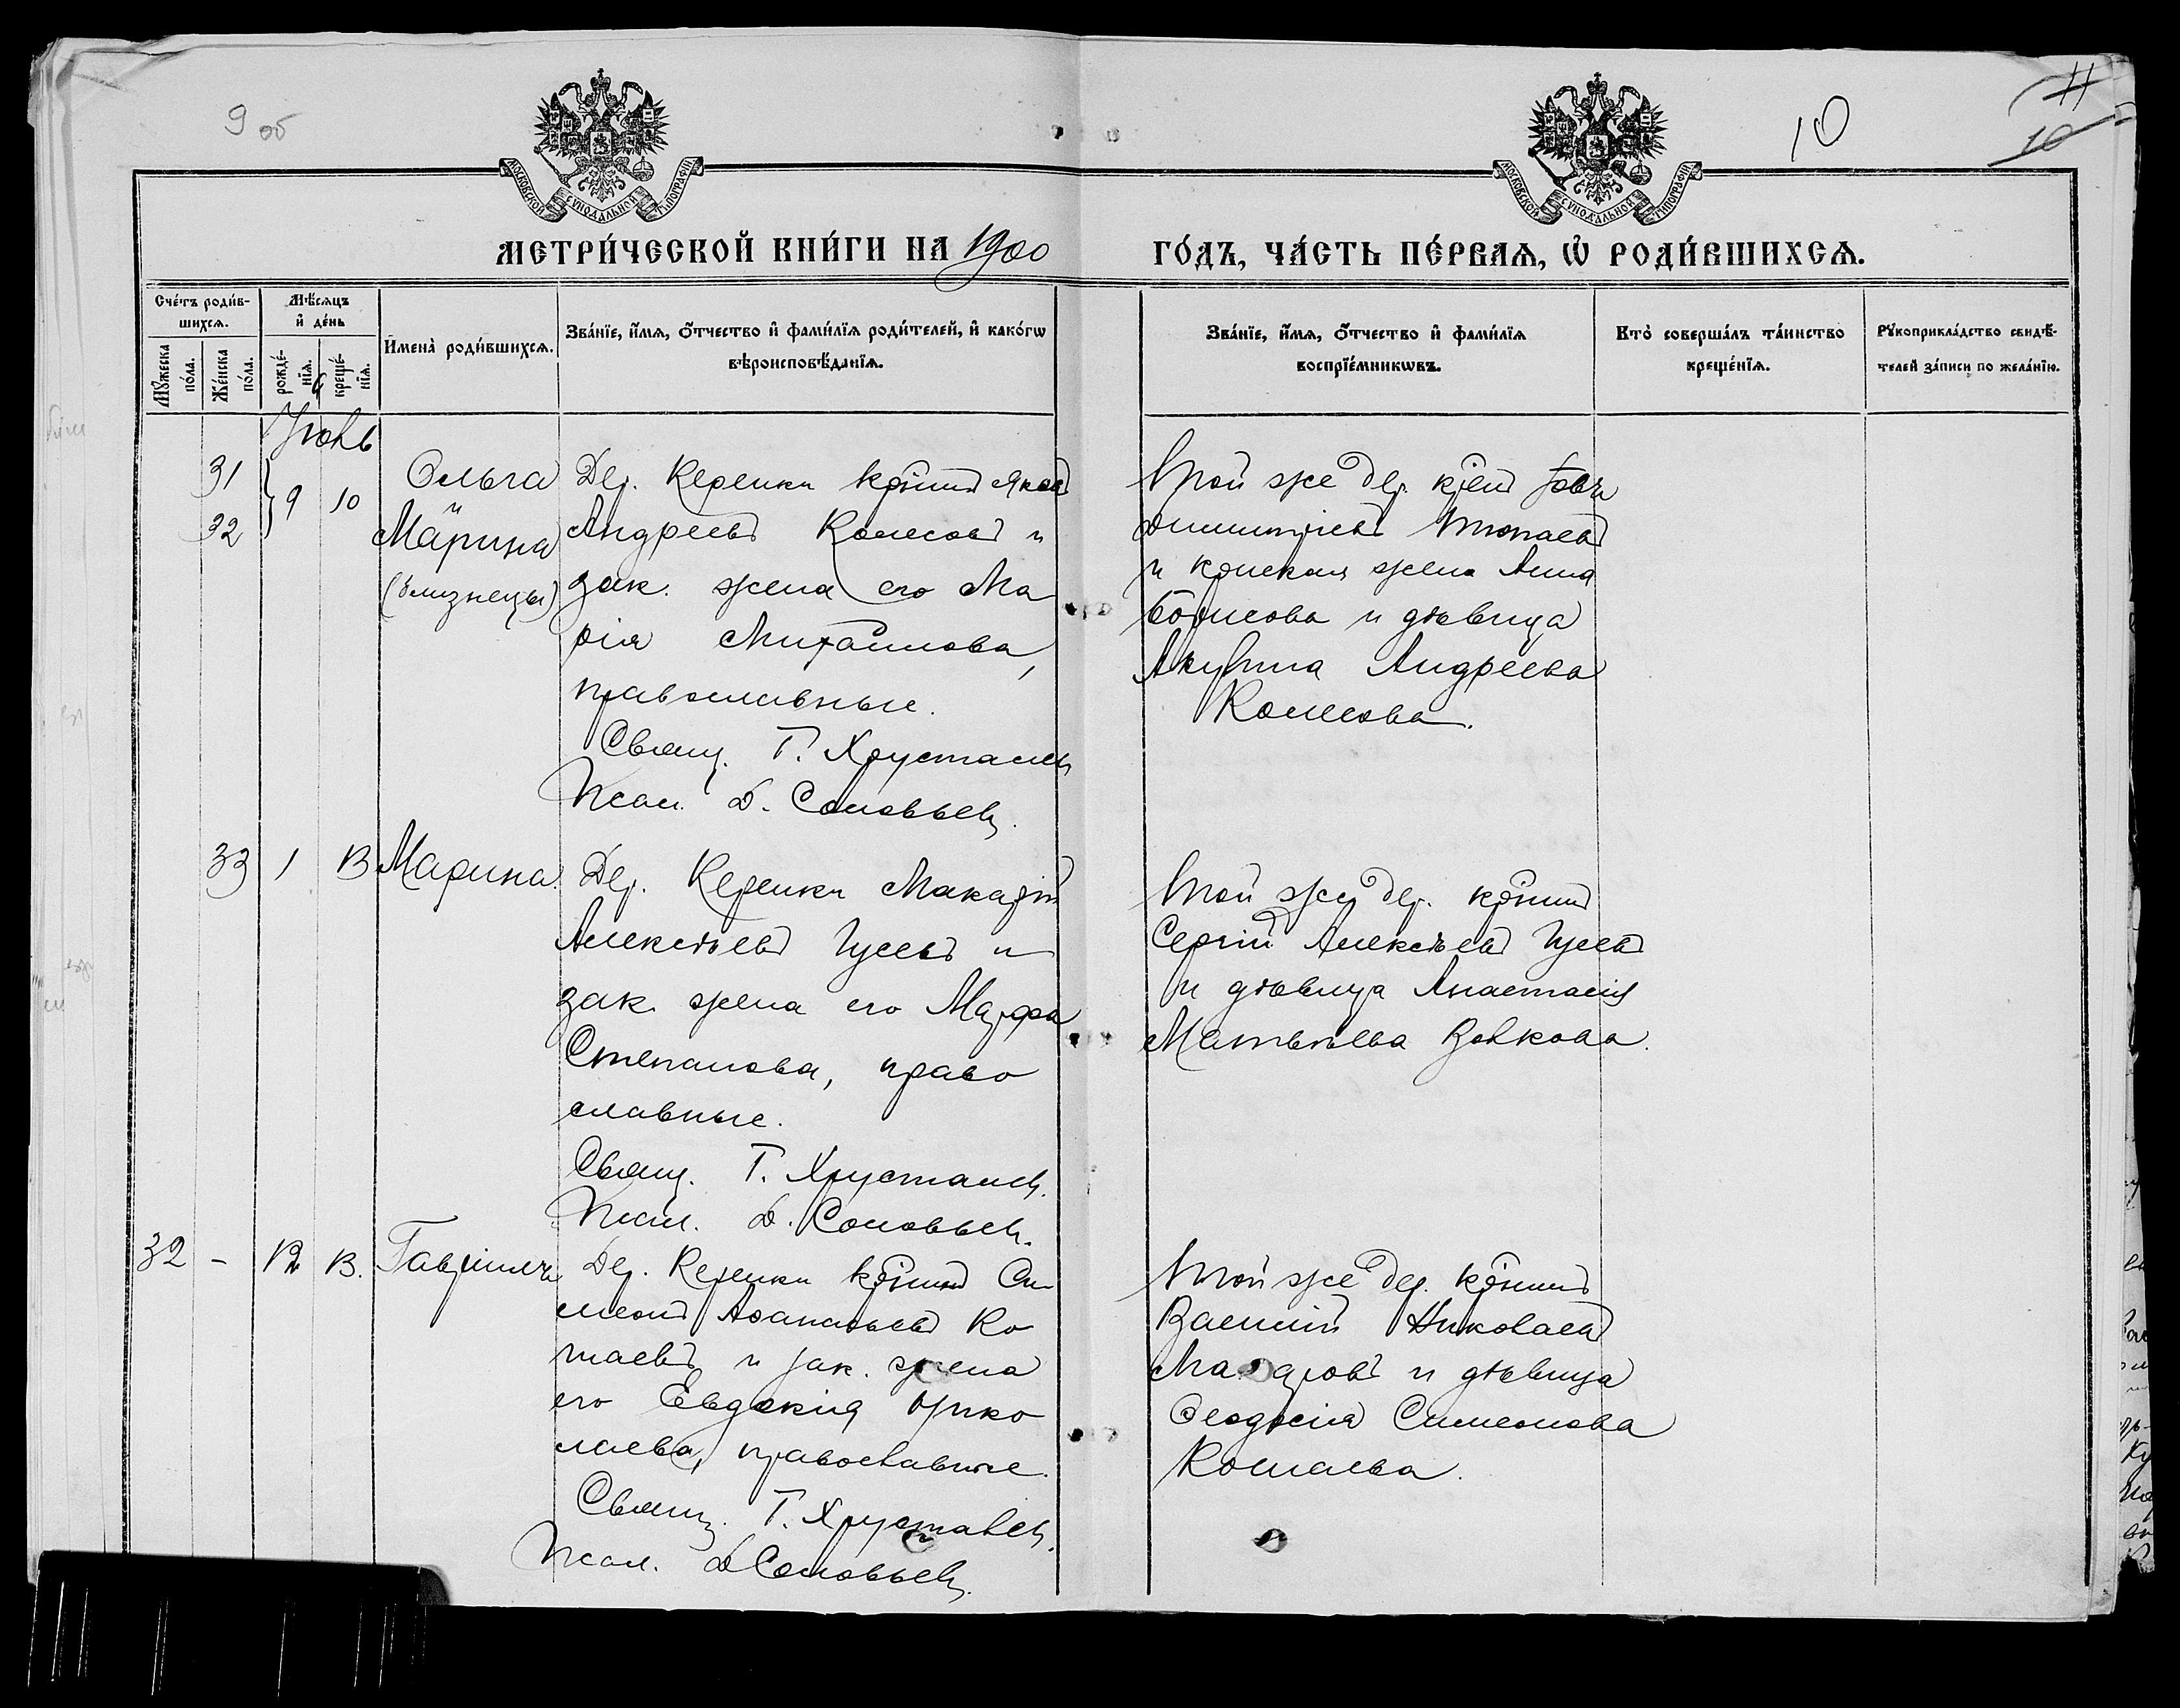 9 об
10
11
10
МОСКОВСКОЙ СѴНОДАЛЬНОЙ ТИПОГРАФІИ
МОСКОВСКОЙ СѴНОДАЛЬНОЙ ТИПОГРАФІИ
МЕТРИ́ЧЕСКОЙ КНИ́ГИ НА 1900 ГО́ДЪ, ЧА́СТЬ ПЕ́РВАЯ, Ѡ҆ РОДИ́ВШИХСЯ.
Сче́тъ роди́в-
шихся.
Мѣ́сяцъ
и҆ де́нь
Мꙋ́жеска
по́ла.
Же́нска
по́ла.
рожде́-
нїя.
креще́-
нїя.
И҆мена̀ роди́вшихся.
Зва́нїе, и҆́мя, ѻ҆́тчество и҆ фами́лїя роди́телей, и҆ како́гѡ
вѣроисповѣ́данїя.
Зва́нїе, и҆́мя, ѻ҆́тчество и҆ фами́лїя
воспрїе́мникѡвъ.
Кто̀ соверша́лъ та́инство
креще́нїя.
Рꙋкоприкла́дство свидѣ́-
телей за́писи по жела́нїю.
Іюнь
31
32
9 10
Ольга
и
Марина
(близнецы)
Дер. Кереики кртинъ Яковъ
Андреевъ Колесовъ и
зак. жена его Ма
рія Михаилова,
православные.
Свящ. Г. Хрусталевъ
Псал. Д. Соловьевъ.
Той же дер.
Димитріевъ
и крнская жена Анна
Борисова и дѣвица
Акулина Андреева
Колесова.
33 1 13 Марина.
Дер. Кереики Макарій
Алексѣевъ Гусевъ и
зак. жена его Марфа
Степанова, право
славные.
Свящ. Г. Хрусталевъ.
Псал. Д. Соловьевъ.
Той же дер. кртинъ
Сергій Алексѣевъ Гусевъ
и дѣвица Анастасія
Матвѣева Волкова.
32 - 12 13. Гавріилъ
Дер. Кереики кртинъ Си
меонъ Аѳанасьевъ Ко
шаевъ и зак. жена
его Евдокія Нико
лаева, православные.
Свящ. Г. Хрусталевъ.
Псал. Д. Соловьевъ.
Той же дер. кртинъ
Василій Николаевъ
и дѣвица
Ѳеодосія Симеонова
Кошаева.